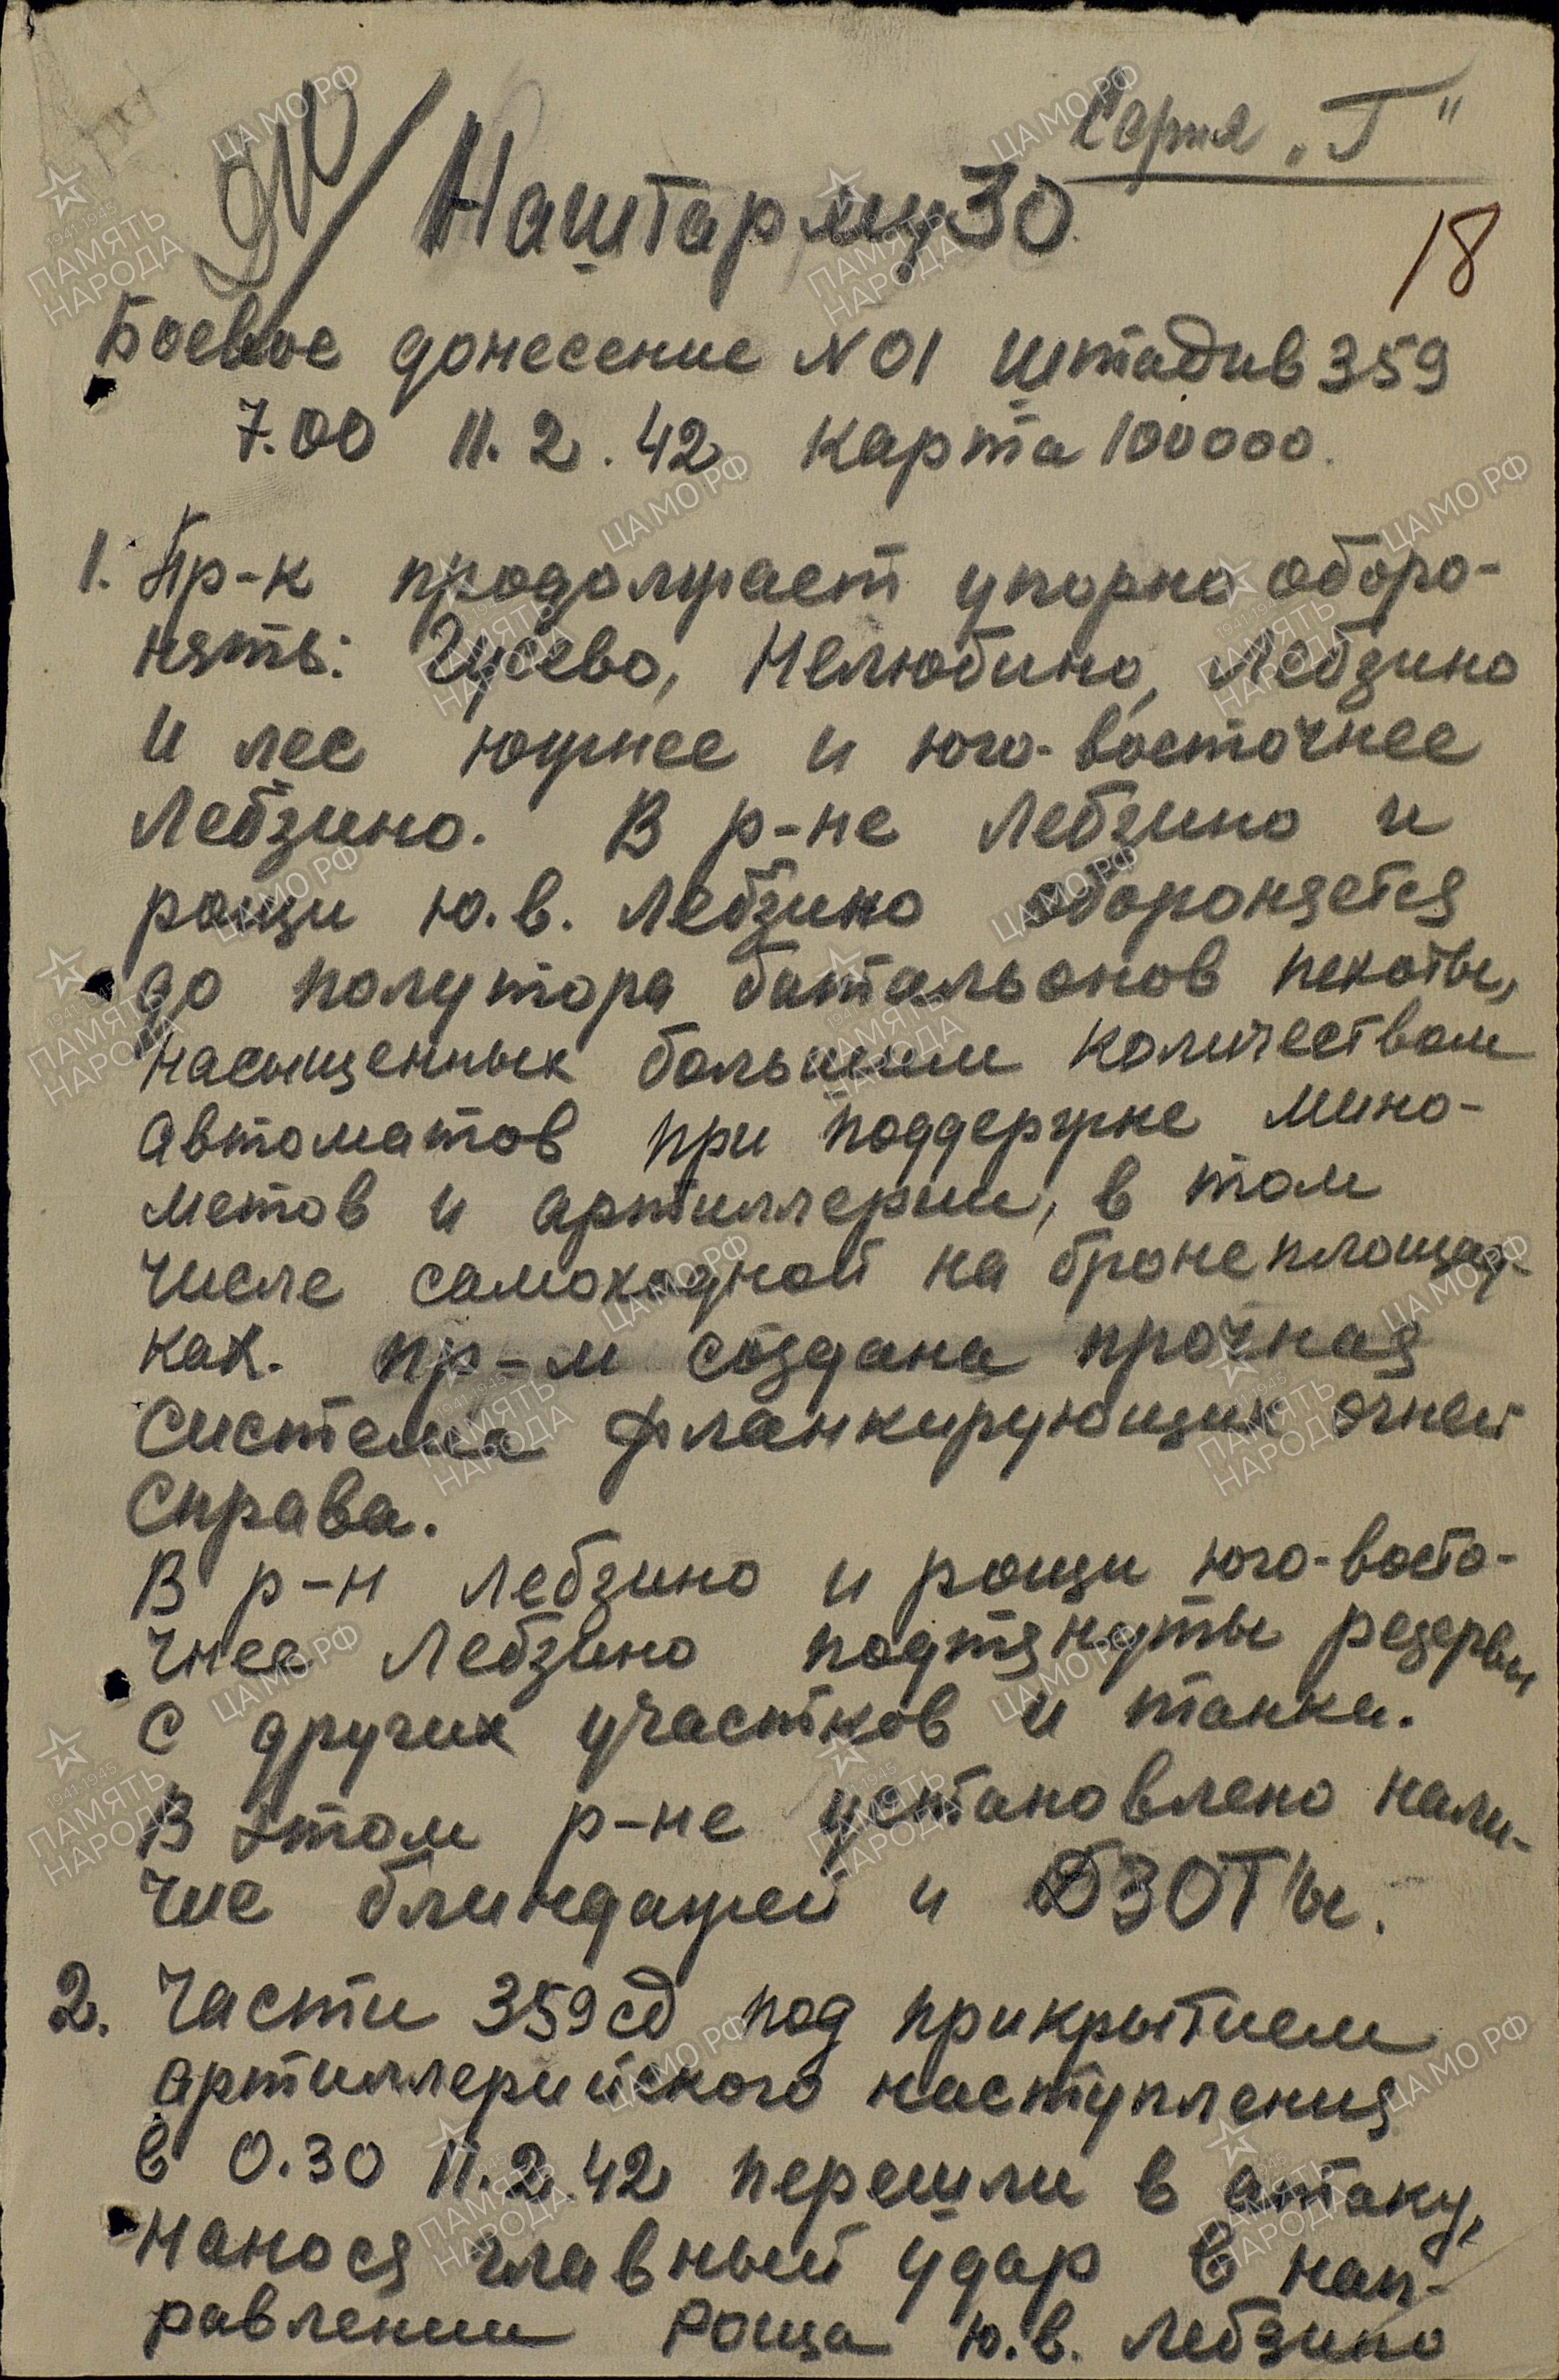 Серия „Г"
Наштарму 30
18
Боевое донесение N 01 штадив 359
7.00 11.2.42 карта 100000.
1. Пр-к продолжает упорно оборо-
нять: Гусево, Нелюбино, Лебзино
и лес южнее и юго-восточнее
Лебзино. В р-не Лебзино и
рощи ю.в. Лебзино обороняется
до полутора батальонов пехоты,
насыщенных большим количеством
автоматов при поддержке мино-
метов и артиллерии, в том
числе самоходной на бронеплощад-
ках. пр-м создана прочная
система фланкирующих огней
справа.
В р-н Лебзино и рощи юго-восто-
чнее Лебзино подтянуты резервы
с других участков и танки.
В этом р-не установлено нали-
чие блиндажей и ДЗОТ'ы.
2. Части 359 сд под прикрытием
артиллерийского наступления
в 0.30 11.2.42 перешли в атаку,
нанося главный удар в нап-
равлении роща ю.в. Лебзино